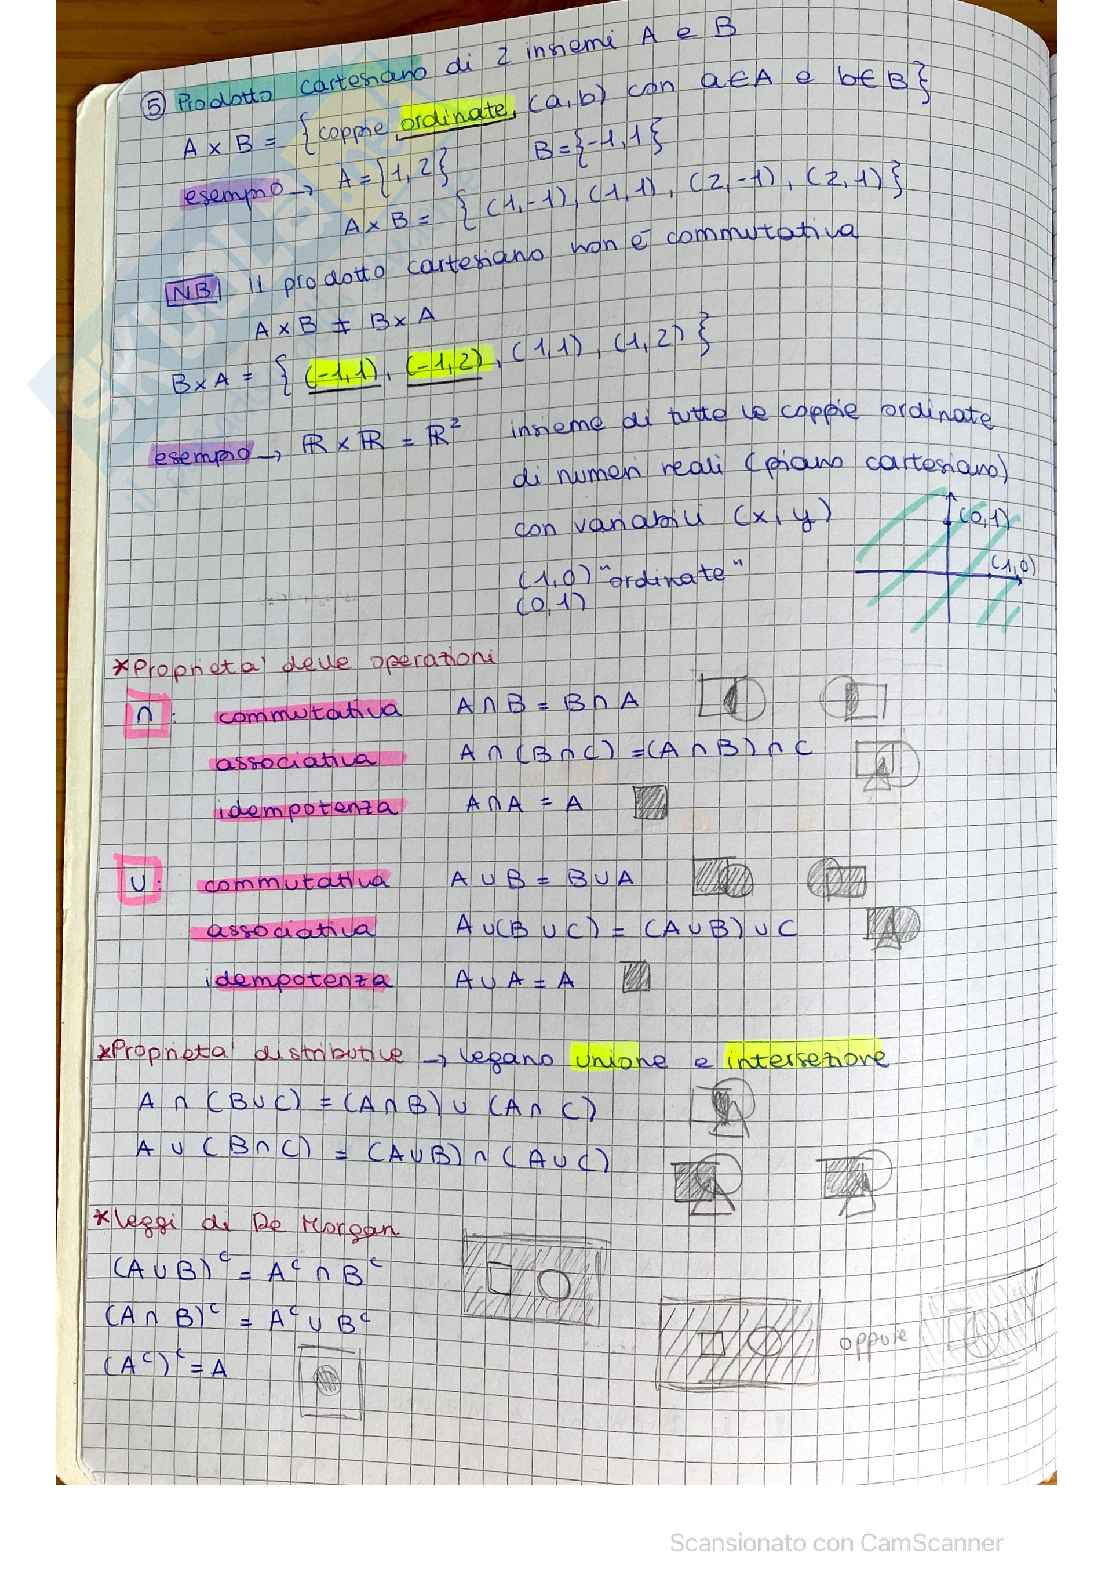 ⑤ Prodotto cartesiano di 2 insiemi A e B
A × B = {coppie ordinate, (a,b) con a∈A e b∈B}
esempio → A = {1,2} B = {-1,1}
A × B = {(1,-1), (1,1), (2,-1), (2,1)}
NB Il prodotto cartesiano non è commutativa
A × B ≠ B × A
B × A = {(-1,1), (-1,2), (1,1), (1,2)}
esempio → ℝ × ℝ = ℝ² insieme di tutte le coppie ordinate
di numeri reali (piano cartesiano)
con variabili (x,y)
(0,1)
(1,0)
(1,0) "ordinate"
(0,1)
*Proprietà delle operazioni
∩: commutativa A ∩ B = B ∩ A
associativa A ∩ (B ∩ C) = (A ∩ B) ∩ C
idempotenza A ∩ A = A
∪: commutativa A ∪ B = B ∪ A
associativa A ∪ (B ∪ C) = (A ∪ B) ∪ C
idempotenza A ∪ A = A
*Proprietà distributive → legano unione e intersezione
A ∩ (B ∪ C) = (A ∩ B) ∪ (A ∩ C)
A ∪ (B ∩ C) = (A ∪ B) ∩ (A ∪ C)
*Leggi di De Morgan
(A ∪ B)ᶜ = Aᶜ ∩ Bᶜ
(A ∩ B)ᶜ = Aᶜ ∪ Bᶜ
oppure
(Aᶜ)ᶜ = A
Scansionato con CamScanner